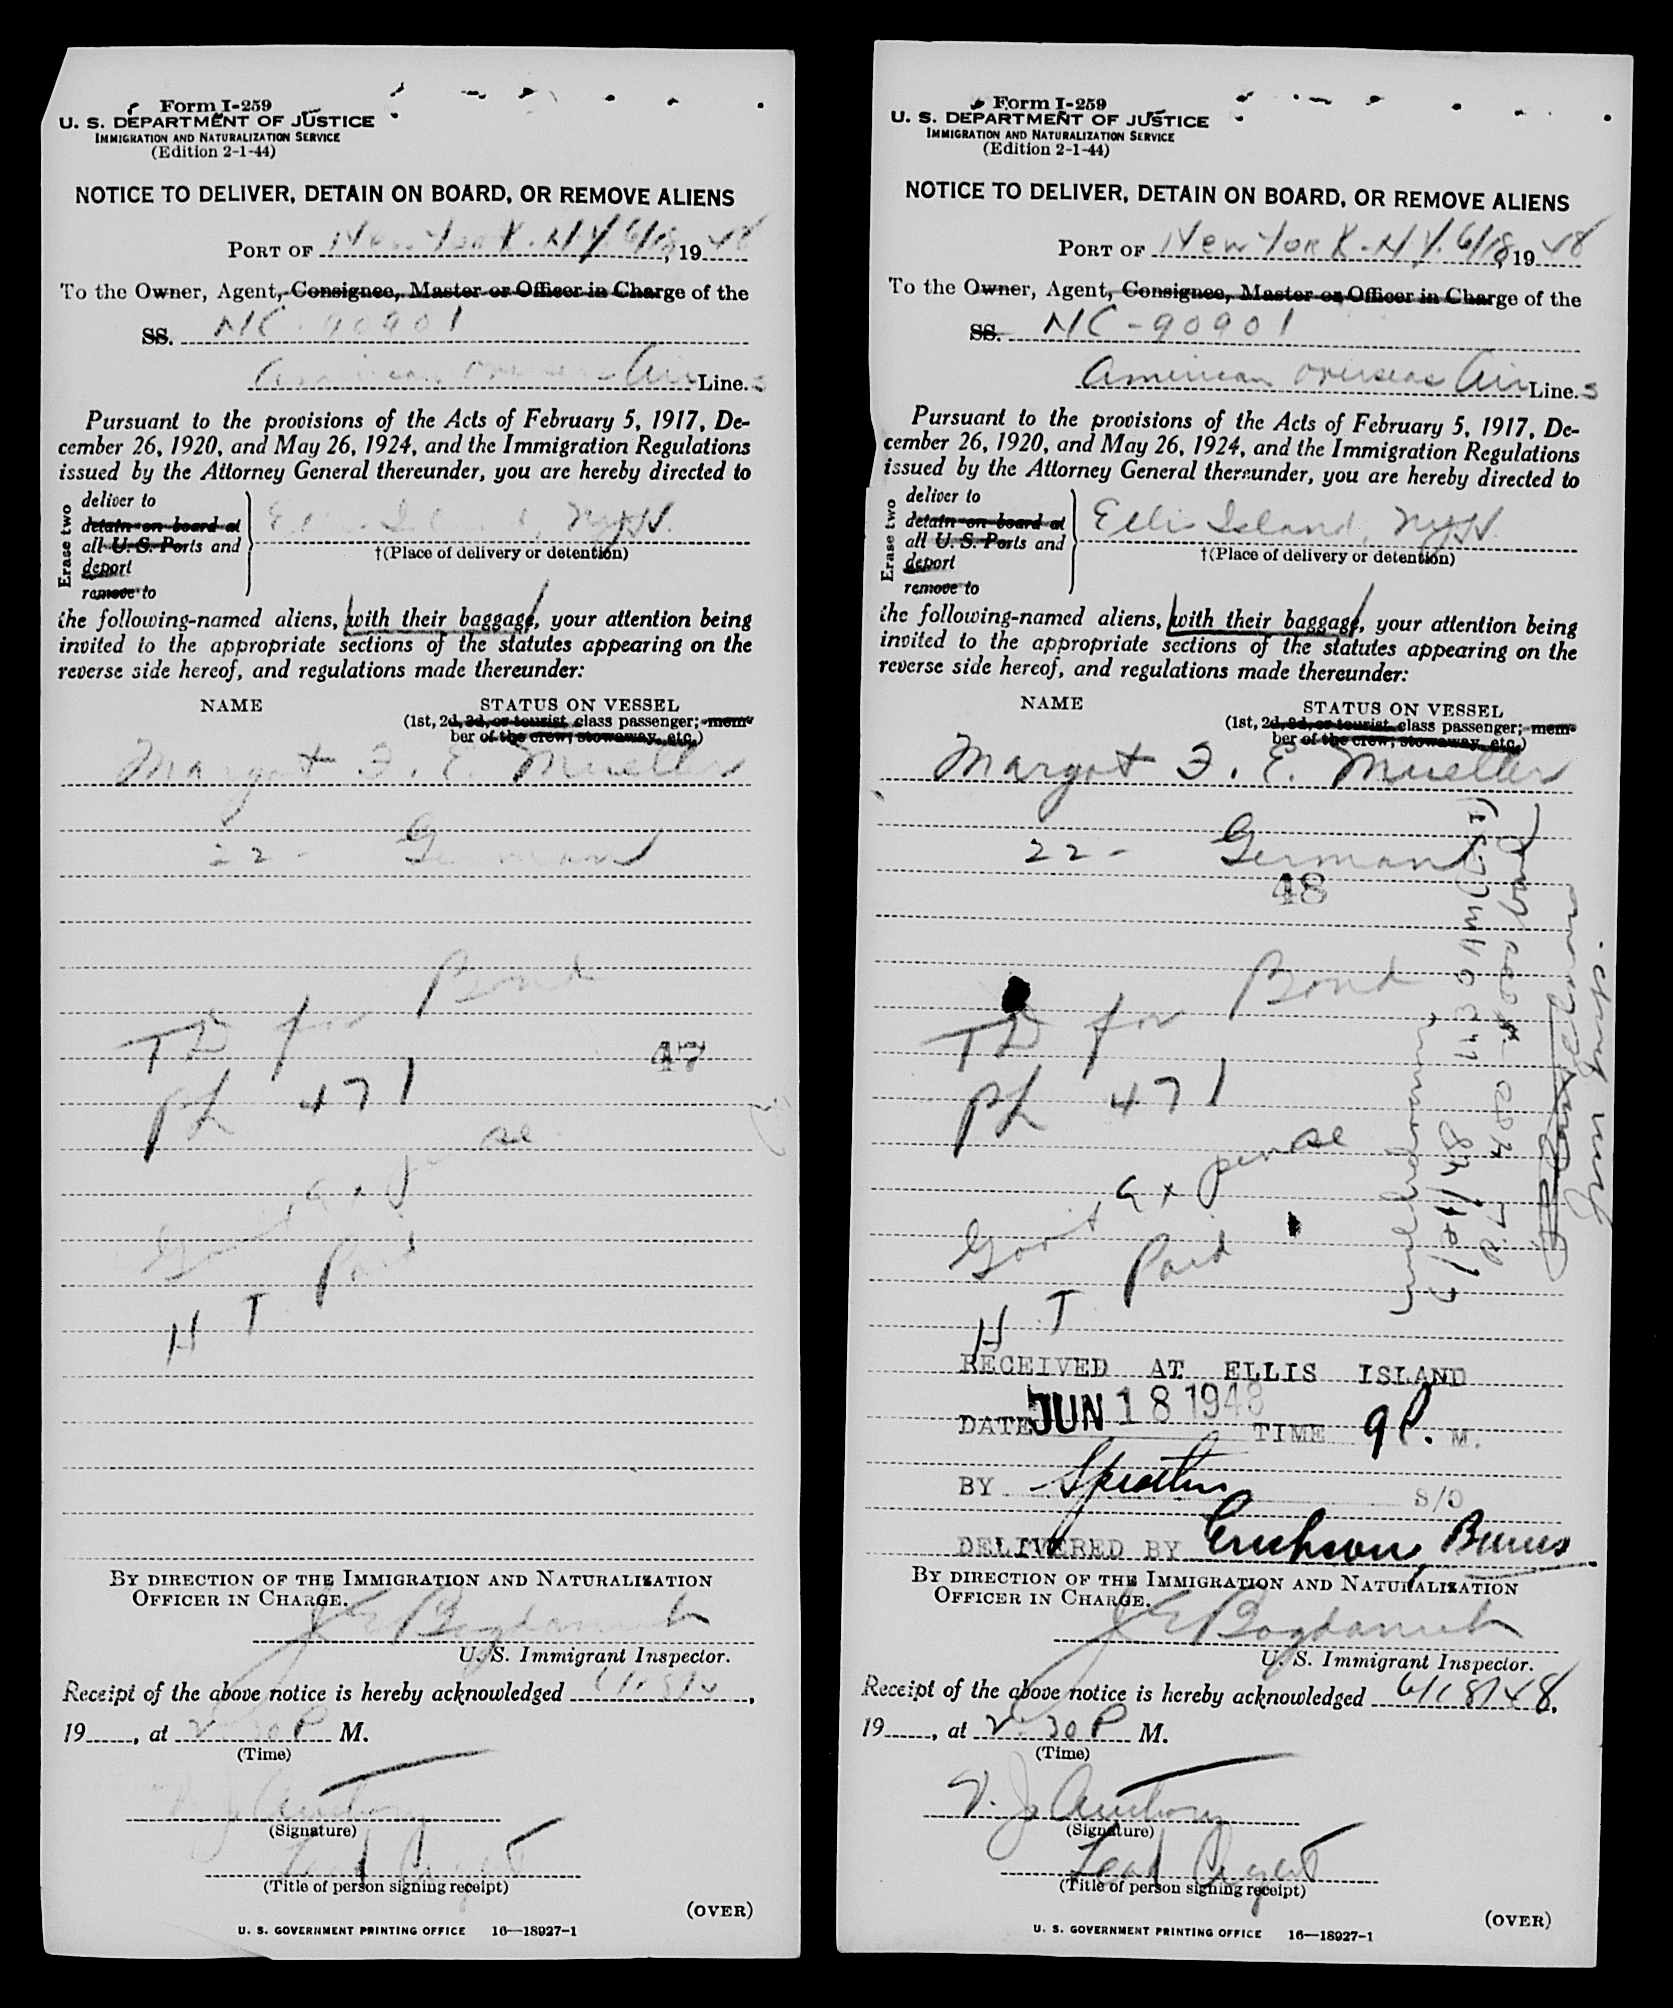 Form I-259
U. S. DEPARTMENT OF JUSTICE
IMMIGRATION AND NATURALIZATION SERVICE
(Edition 2-1-44)
NOTICE TO DELIVER, DETAIN ON BOARD, OR REMOVE ALIENS
PORT OF New York. N.Y. 6/18, 1948
To the Owner, Agent, Consignee, Master or Officer in Charge of the
SS. NC-90901
American Overseas Air Line.s
Pursuant to the provisions of the Acts of February 5, 1917, De-
cember 26, 1920, and May 26, 1924, and the Immigration Regulations
issued by the Attorney General thereunder, you are hereby directed to
Erase two
deliver to
detain on board at
all U. S. Ports and
deport
remove to
Ellis Island, NYH.
†(Place of delivery or detention)
the following-named aliens, with their baggage, your attention being
invited to the appropriate sections of the statutes appearing on the
reverse side hereof, and regulations made thereunder:
NAME
STATUS ON VESSEL
(1st, 2d, 3d, or tourist class passenger; mem-
ber of the crew, stowaway, etc.)
Margot F. E. Mueller
22 - German
Bond
TD for
47
PL 471
Gov't expense
Paid
H T
BY DIRECTION OF THE IMMIGRATION AND NATURALIZATION
OFFICER IN CHARGE.
U. S. Immigrant Inspector.
Receipt of the above notice is hereby acknowledged 6/18/48,
19, at 2:30 P M.
(Time)
(Signature)
Lead Agent
(Title of person signing receipt)
(OVER)
U. S. GOVERNMENT PRINTING OFFICE 16—18927-1
Form I-259
U. S. DEPARTMENT OF JUSTICE
IMMIGRATION AND NATURALIZATION SERVICE
(Edition 2-1-44)
NOTICE TO DELIVER, DETAIN ON BOARD, OR REMOVE ALIENS
PORT OF New York. N.Y. 6/18, 1948
To the Owner, Agent, Consignee, Master or Officer in Charge of the
SS. NC-90901
American Overseas Air Line.s
Pursuant to the provisions of the Acts of February 5, 1917, De-
cember 26, 1920, and May 26, 1924, and the Immigration Regulations
issued by the Attorney General thereunder, you are hereby directed to
Erase two
deliver to
detain on board at
all U. S. Ports and
deport
remove to
Ellis Island, NYH.
†(Place of delivery or detention)
the following-named aliens, with their baggage, your attention being
invited to the appropriate sections of the statutes appearing on the
reverse side hereof, and regulations made thereunder:
NAME
STATUS ON VESSEL
(1st, 2d, 3d, or tourist class passenger; mem-
ber of the crew, stowaway, etc.)
Margot F. E. Mueller
22 - German
48
Bond
TD for
PL 471
Gov't expense
Paid
H T
RECEIVED AT ELLIS ISLAND
DATE JUN 18 1948 TIME 9 P. M.
BY S/O
DELIVERED BY Erickson, Burns
BY DIRECTION OF THE IMMIGRATION AND NATURALIZATION
OFFICER IN CHARGE.
U. S. Immigrant Inspector.
Receipt of the above notice is hereby acknowledged 6/18/48,
19, at 2:30 P M.
(Time)
(Signature)
Lead Agent
(Title of person signing receipt)
(OVER)
U. S. GOVERNMENT PRINTING OFFICE 16—18927-1